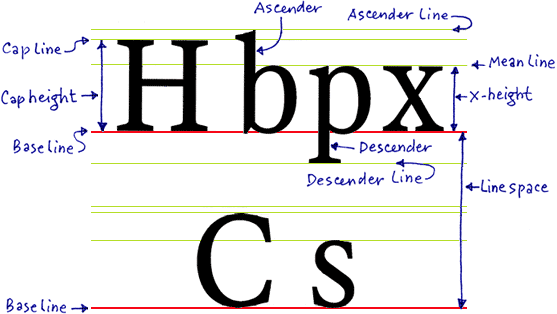 Ascender
Ascender Line
Cap line
Hbpx
Mean line
Cap height
X-height
Base line
Descender
Descender Line
Line space
Cs
Base line